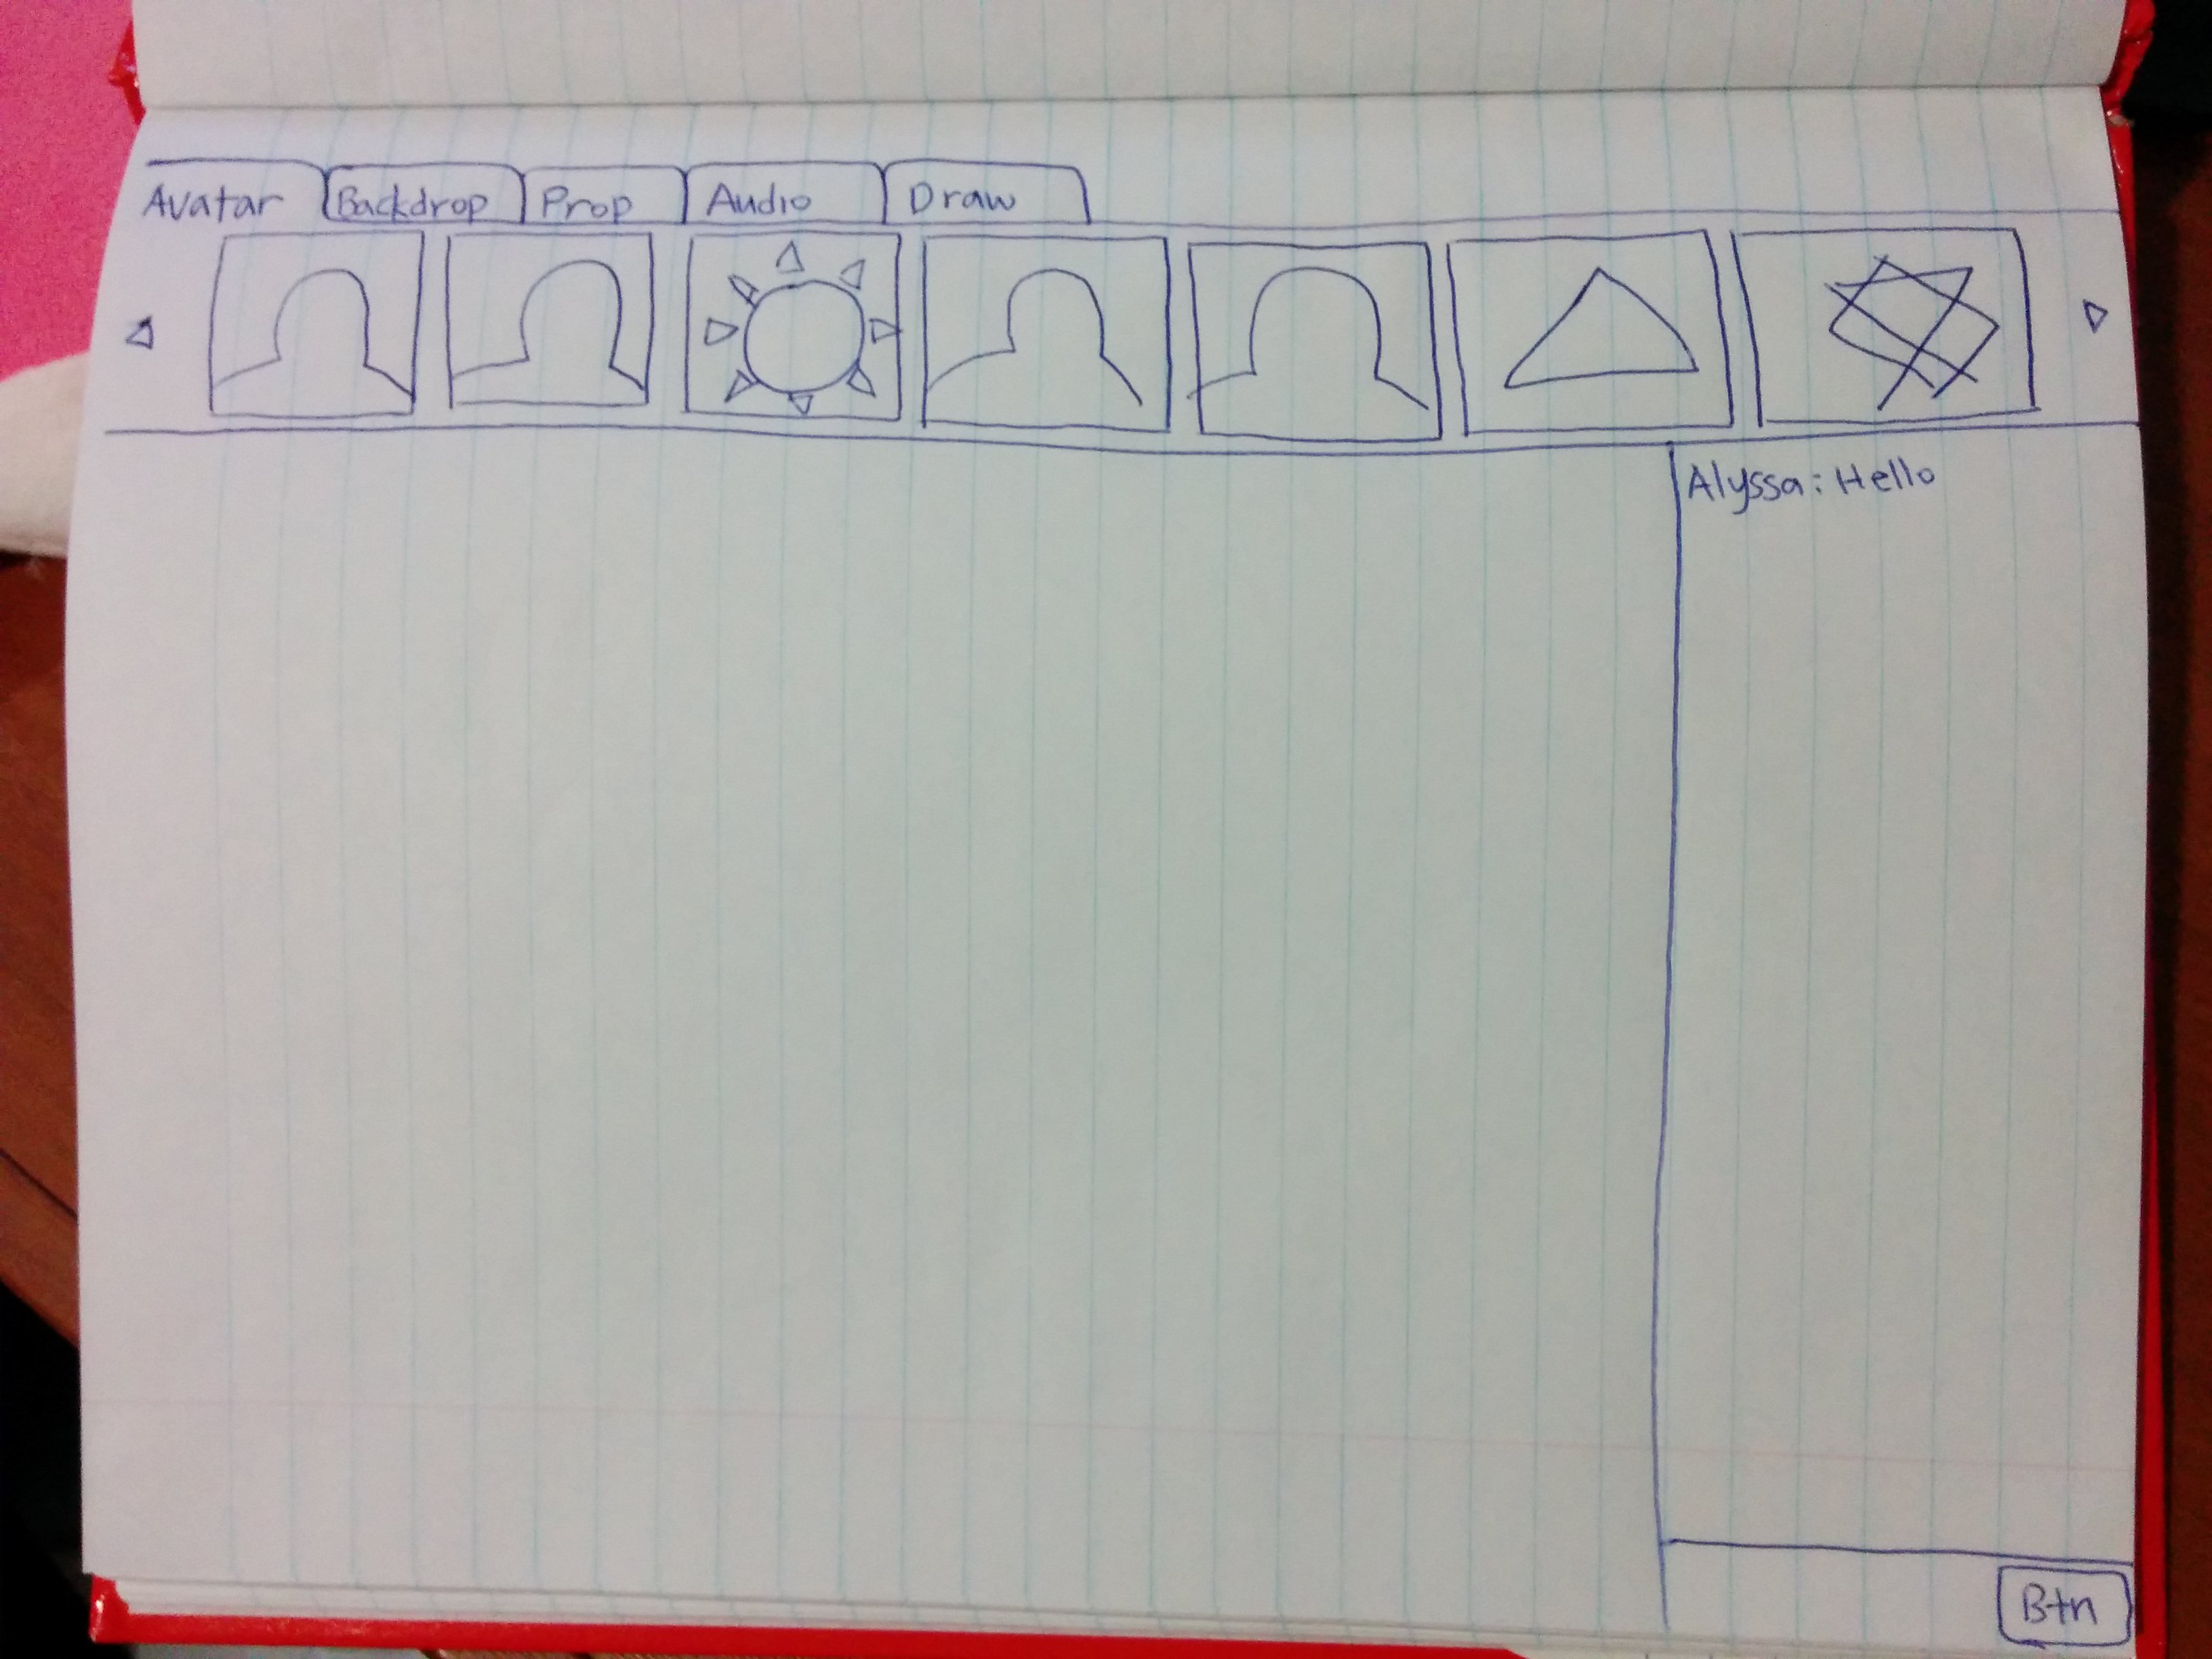 Avatar Backdrop Prop Audio Draw
Alyssa: Hello
Btn